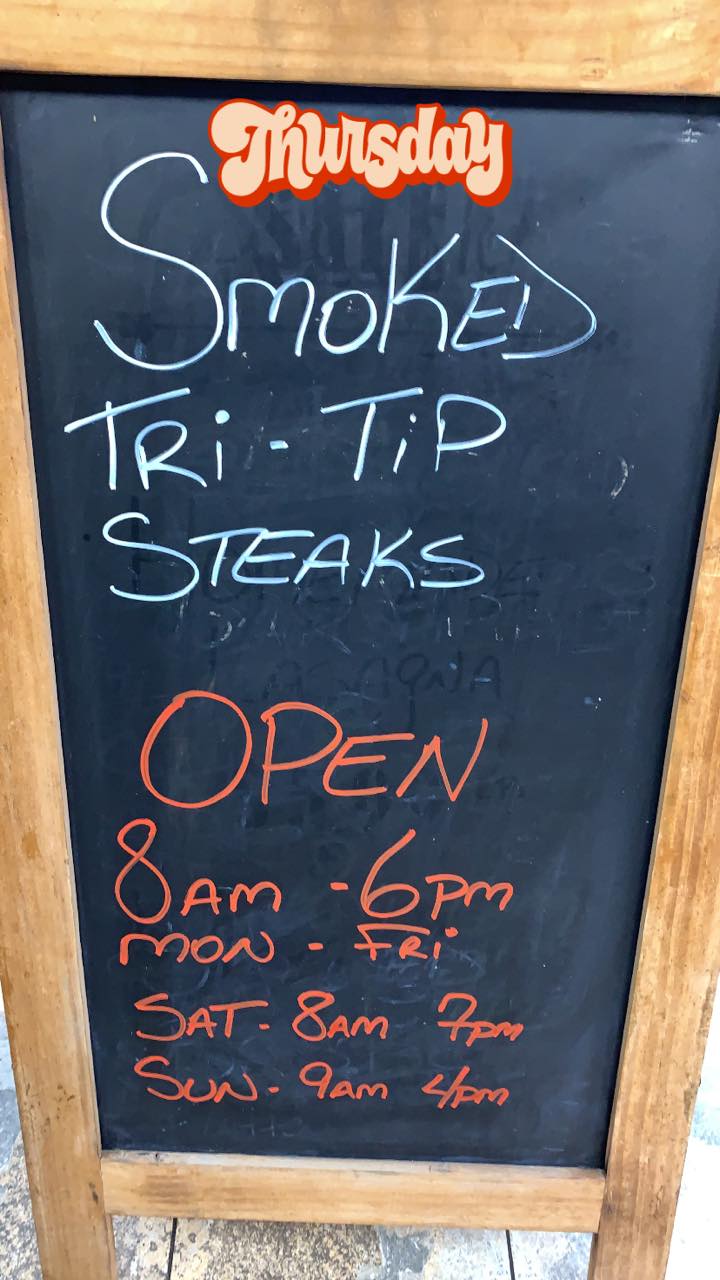 Thursday
SMOKED
TRi - TiP
STEAKS
OPEN
8AM - 6PM
MON - FRi
SAT - 8AM 7pm
SUN - 9AM 4pm